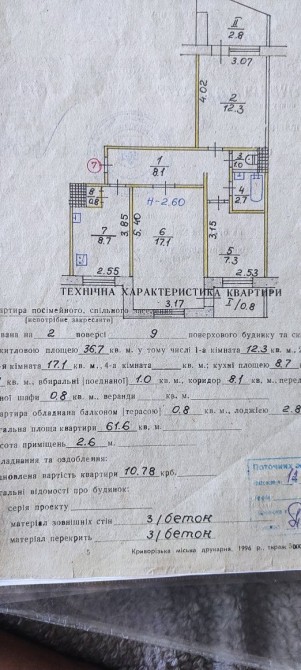 II
2.8
3.07
4.02
2
12.3
7
1
8.1
3
1.0
8
0.8
H-2.60
4
2.7
3.85
5.40
3.15
7
8.7
6
17.1
5
7.3
2.55
2.53
ТЕХНІЧНА ХАРАКТЕРИСТИКА КВАРТИРИ
3.17
I/0.8
артира посімейного, спільного заселення
(непотрібне закреслити)
вана на 2 поверсі 9 поверхового будинку та
житловою площею 36,7 кв. м, у тому числі 1-а кімната 12.3 кв. м,
й кімната 17.1 кв. м, 4-а кімната кв. м; кухні площею 8,7
кв. м, вбиральні [поєднаної] 1.0 кв. м, коридор 8.1 кв. м,
ної шафи 0,8 кв. м, веранди кв. м.
артира обладнана балконом [терасою] 0.8 кв. м, лоджією 2.8
гальна площа квартири 61.6 кв. м.
сота приміщень 2.6 м.
ладнання та оздоблення:
новлена вартість квартири 10.78 крб.
гальні відомості про будинок:
серія проекту
матеріал зовнішніх стін з/бетон
матеріал перекрить з/бетон
5 Криворізька міська друкарня, 1996 р., тираж